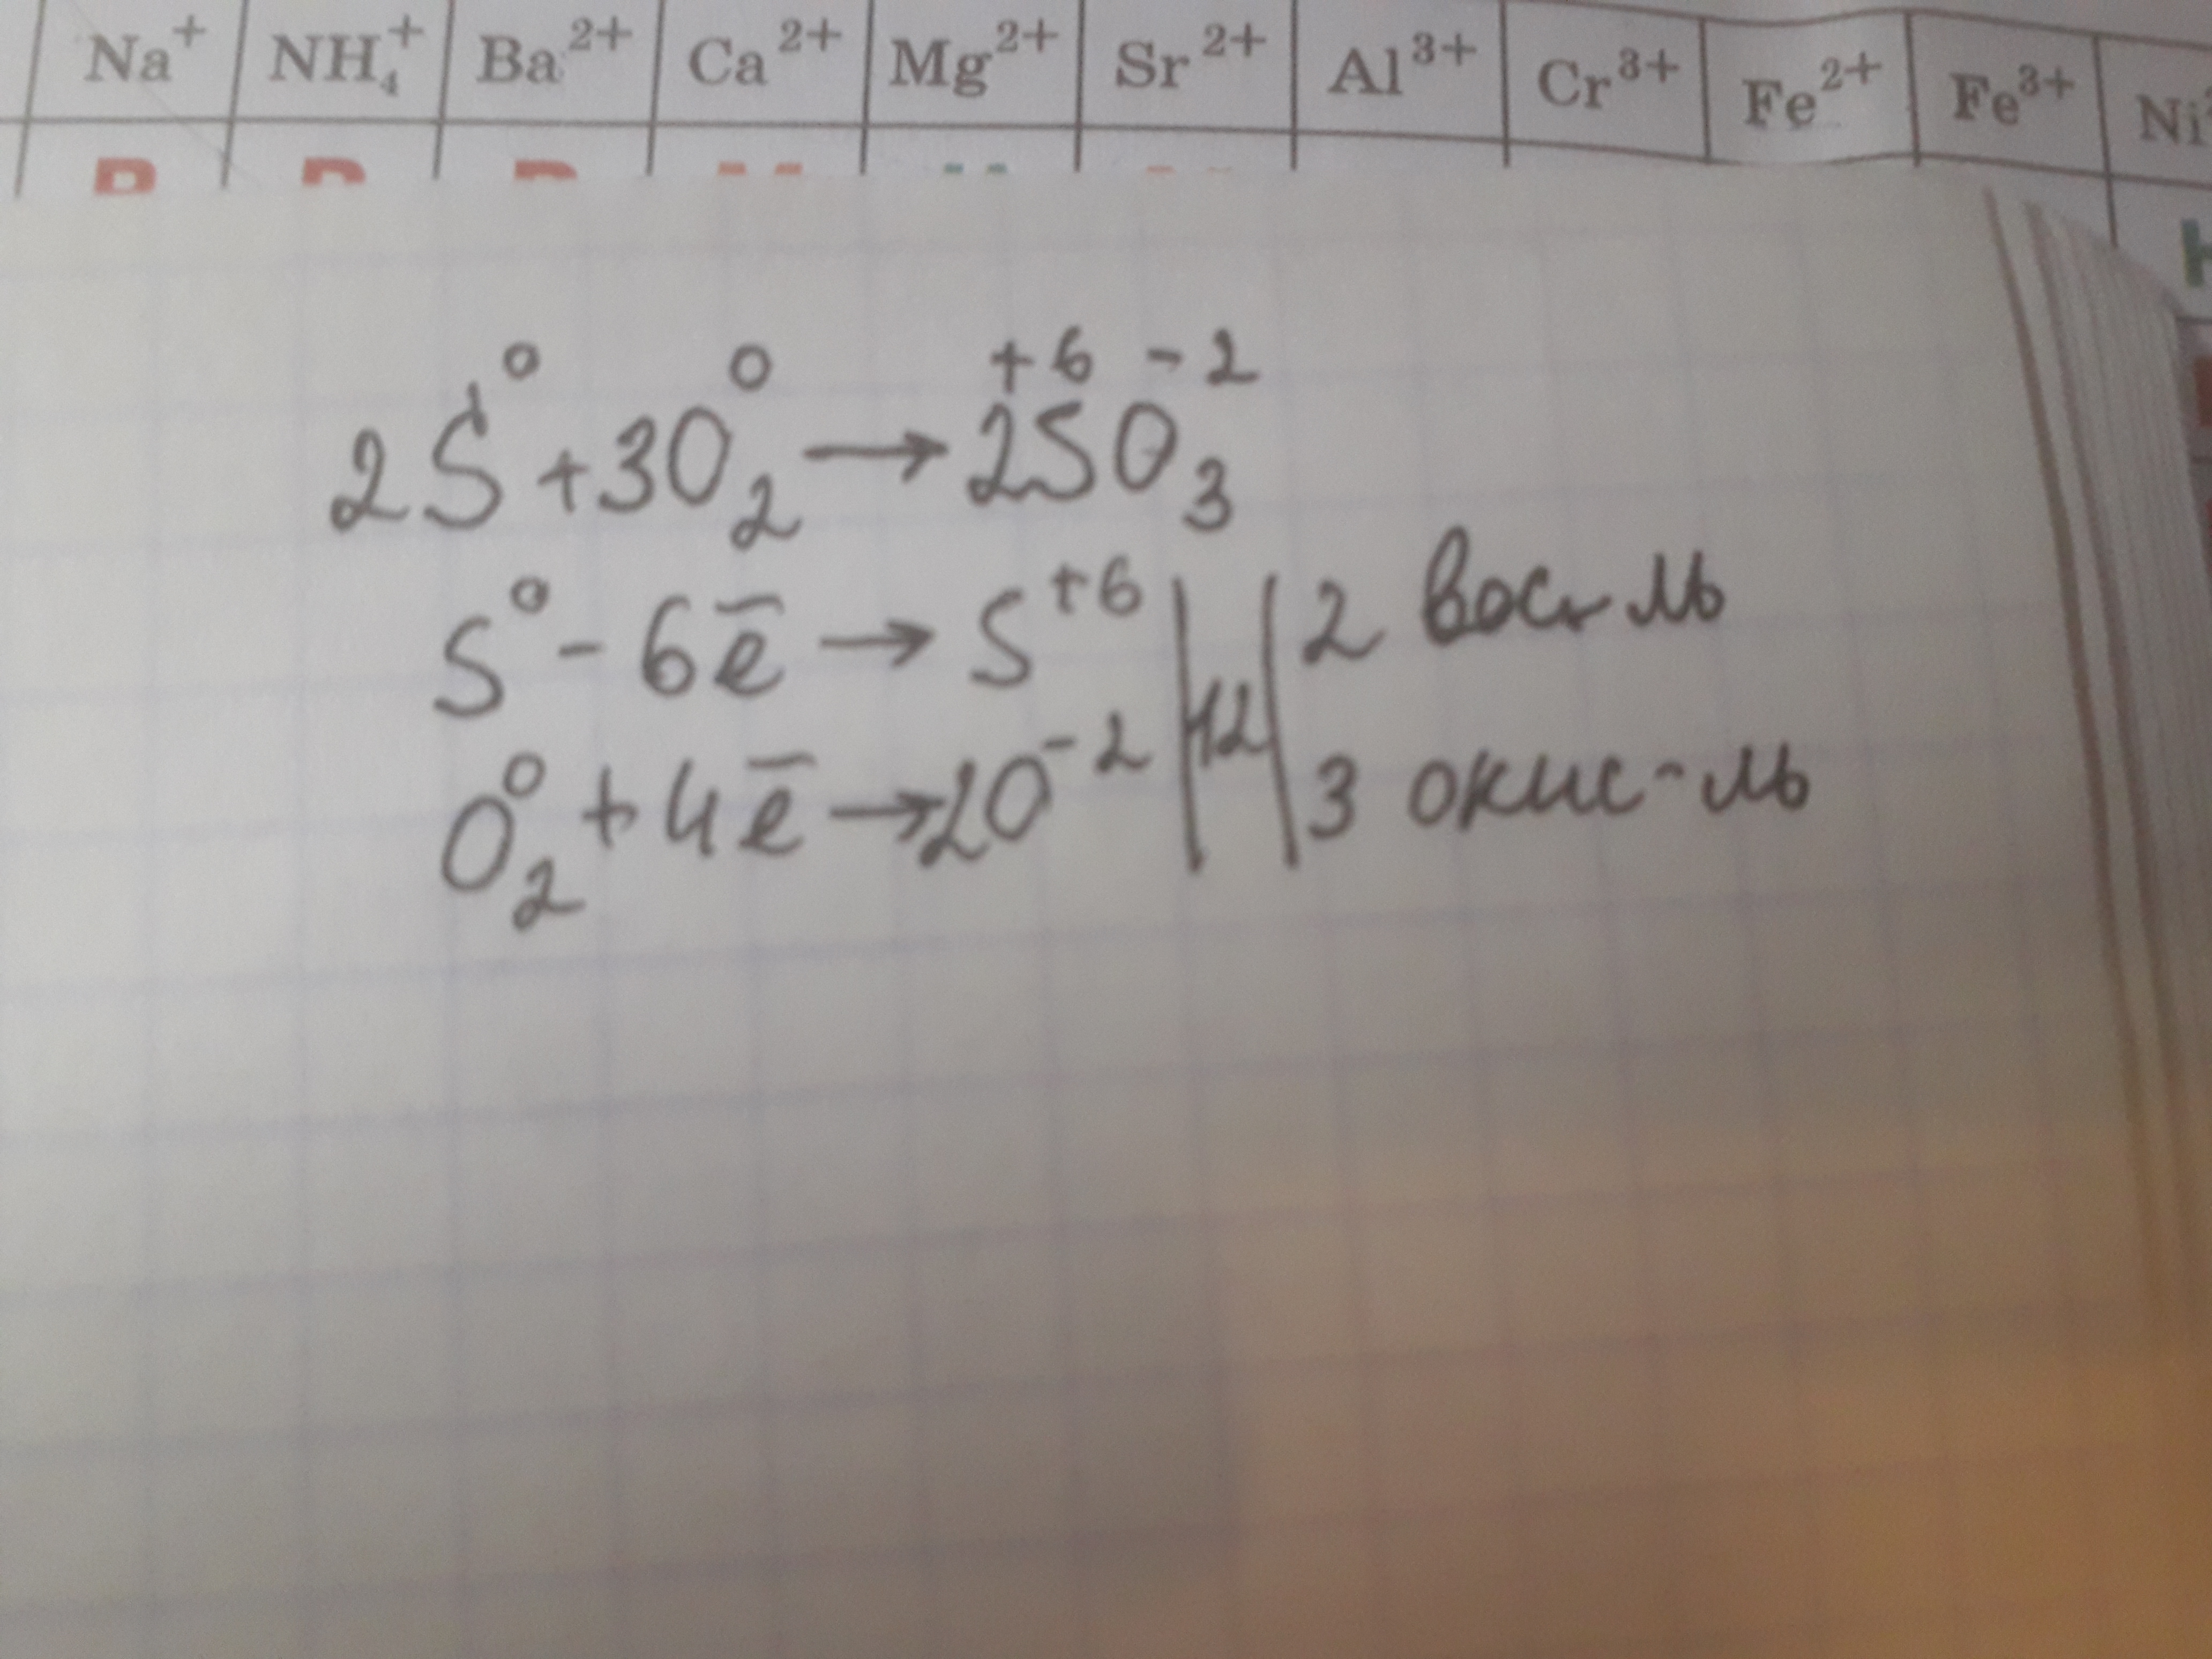 Na⁺ NH₄⁺ Ba²⁺ Ca²⁺ Mg²⁺ Sr²⁺ Al³⁺ Cr³⁺ Fe²⁺ Fe³⁺ Ni
2S⁰ + 3O₂⁰ → 2S⁺⁶O₃⁻²
S⁰ - 6ē → S⁺⁶ | 12 | 2 вос-ль
O₂⁰ + 4ē → 2O⁻² | 3 окис-ль